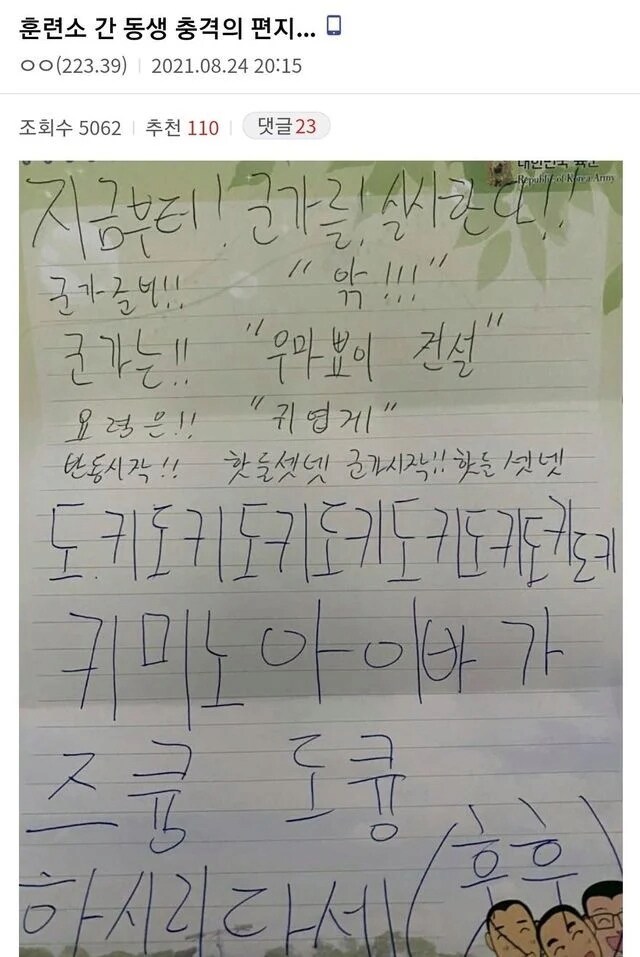 훈련소 간 동생 충격의 편지...
ㅇㅇ(223.39) 2021.08.24 20:15
조회수 5062 추천 110 댓글 23
대한민국 육군
Republic of Korea Army
지금부터! 군가를! 실시한다!!
군가준비!! "앆!!!"
군가는!! "우마뾰이 전설"
요령은!! "귀엽게"
반동시작!! 핫둘셋넷 군가시작!! 핫둘셋넷
도키도키도키도키도키도키도키도키
키미노아이바가
즈큠 도큥
하시리다세 (후후)